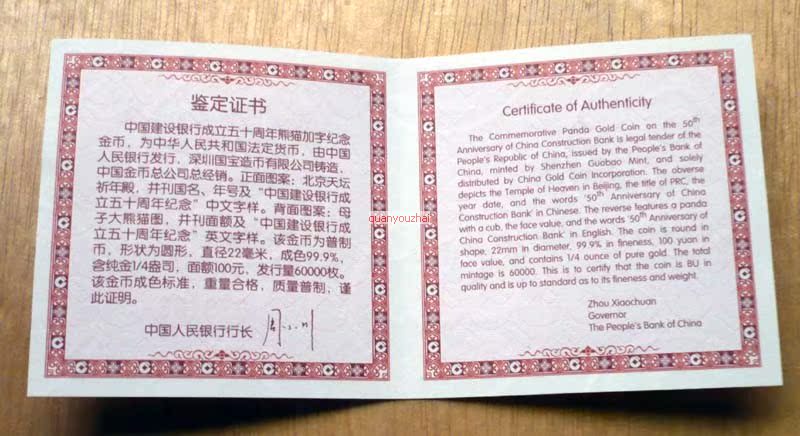 鉴定证书
中国建设银行成立五十周年熊猫加字纪念
金币，为中华人民共和国法定货币，由中国
人民银行发行，深圳国宝造币有限公司铸造，
中国金币总公司总经销。正面图案：北京天坛
祈年殿，并刊国名、年号及“中国建设银行成
立五十周年纪念”中文字样。背面图案：母
子大熊猫图，并刊面额及“中国建设银行成
立五十周年纪念”英文字样。该金币为普制
币，形状为圆形，直径22毫米，成色99.9%，
含纯金1/4盎司，面额100元，发行量60000枚。
该金币成色标准，重量合格，质量普制，谨
此证明。
中国人民银行行长
Certificate of Authenticity
The Commemorative Panda Gold Coin on the 50th
Anniversary of China Construction Bank is legal tender of the
People's Republic of China, issued by the People's Bank of
China, minted by Shenzhen Guobao Mint, and solely
distributed by China Gold Coin Incorporation. The obverse
depicts the Temple of Heaven in Beijing, the title of PRC, the
year date, and the words '50th Anniversary of China
Construction Bank' in Chinese. The reverse features a panda
with a cub, the face value, and the words '50th Anniversary of
China Construction Bank' in English. The coin is round in
shape, 22mm in diameter, 99.9% in fineness, 100 yuan in
face value, and contains 1/4 ounce of pure gold. The total
mintage is 60000. This is to certify that the coin is BU in
quality and is up to standard as to its fineness and weight.
Zhou Xiaochuan
Governor
The People's Bank of China
quanyouzhai